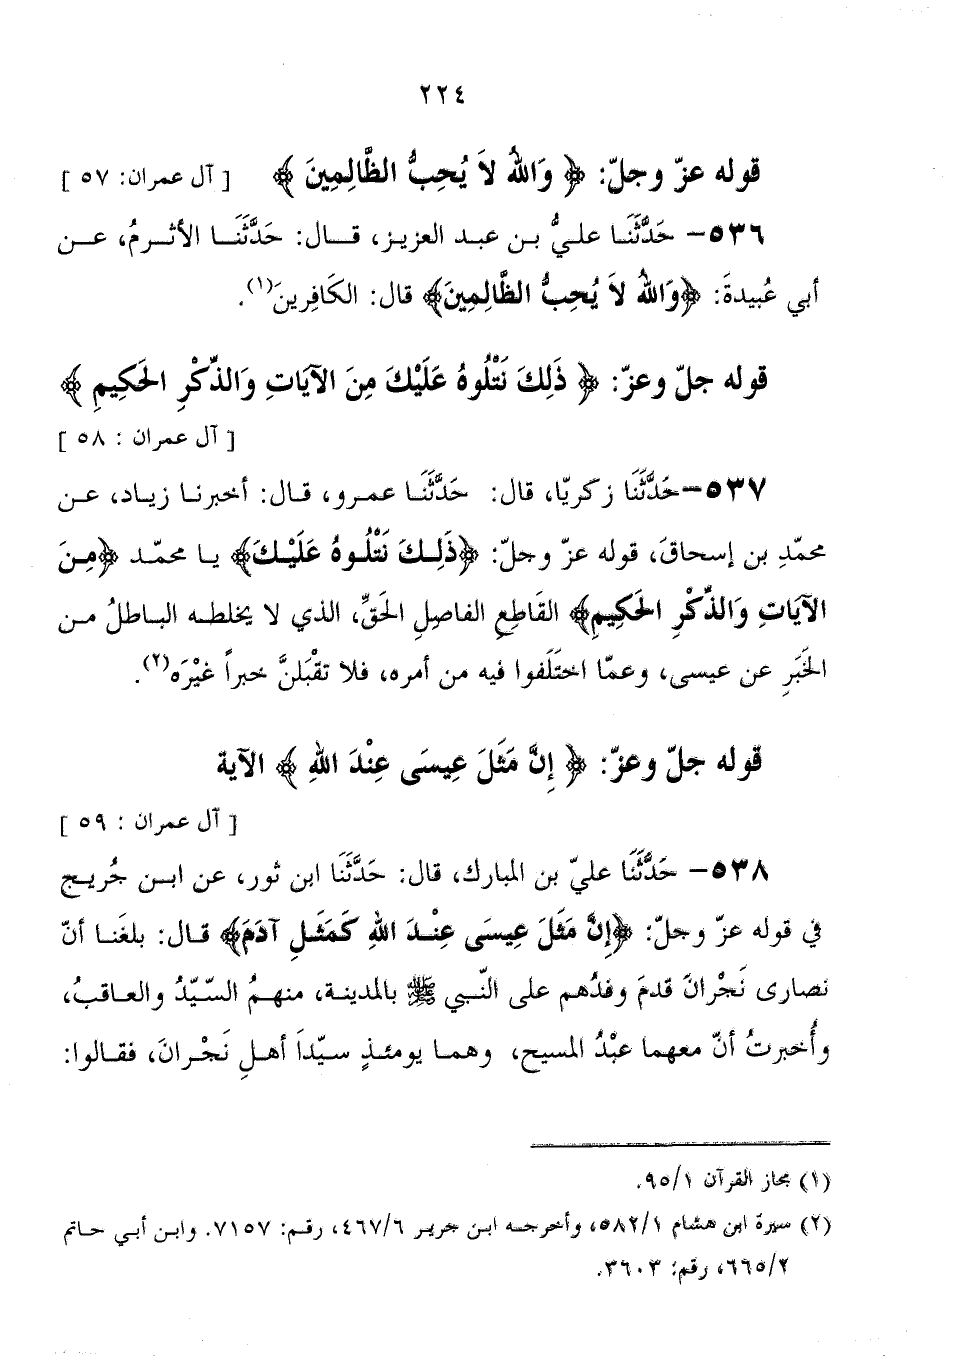 ٢٢٤
قوله عزّ وجلّ: ﴿ وَاللهُ لاَ يُحِبُّ الظَّالِمِينَ ﴾ [ آل عمران: ٥٧ ]
٥٣٦- حَدَّثَنَا عليُّ بن عبد العزيز، قال: حَدَّثَنَا الأثرمُ، عن
أبي عُبيدةَ: ﴿وَاللهُ لاَ يُحِبُّ الظَّالِمِينَ﴾ قال: الكَافِرِينَ(١).
قوله جلّ وعزّ: ﴿ ذَلِكَ نَتْلُوهُ عَلَيْكَ مِنَ الآيَاتِ وَالذِّكْرِ الحَكِيمِ ﴾
[ آل عمران : ٥٨ ]
٥٣٧- حَدَّثَنَا زكريّا، قال: حَدَّثَنَا عمرو، قال: أخبرنا زياد، عن
محمّدِ بن إسحاقَ، قوله عزّ وجلّ: ﴿ذَلِكَ نَتْلُوهُ عَلَيْكَ﴾ يا محمّد ﴿مِنَ
الآيَاتِ وَالذِّكْرِ الحَكِيمِ﴾ القَاطِعِ الفاصِلِ الحَقِّ، الذي لا يخلطه الباطلُ من
الخَبَرِ عن عيسى، وعمّا اختَلَفوا فيه من أمره، فلا تقْبَلنَّ خبراً غيْرَه(٢).
قوله جلّ وعزّ: ﴿ إِنَّ مَثَلَ عِيسَى عِنْدَ اللهِ ﴾ الآية
[ آل عمران : ٥٩ ]
٥٣٨- حَدَّثَنَا عليّ بن المبارك، قال: حَدَّثَنَا ابن ثور، عن ابن جُريج
في قوله عزّ وجلّ: ﴿إِنَّ مَثَلَ عِيسَى عِنْدَ اللهِ كَمَثَلِ آدَمَ﴾ قال: بلغَنا أنّ
نصارى نَجْرانَ قدمَ وفدُهم على النّبي ﷺ بالمدينة، منهمُ السّيّدُ والعاقبُ،
وأُخبرتُ أنّ معهما عبْدُ المسيح، وهما يومئذٍ سيّداَ أهلِ نَجْرانَ، فقالوا:
(١) مجاز القرآن ٩٥/١.
(٢) سيرة ابن هشام ٥٨٢/١، وأخرجه ابن جرير ٤٦٧/٦، رقم: ٧١٥٧. وابن أبي حاتم
٦٦٥/٢، رقم: ٣٦٠٣.